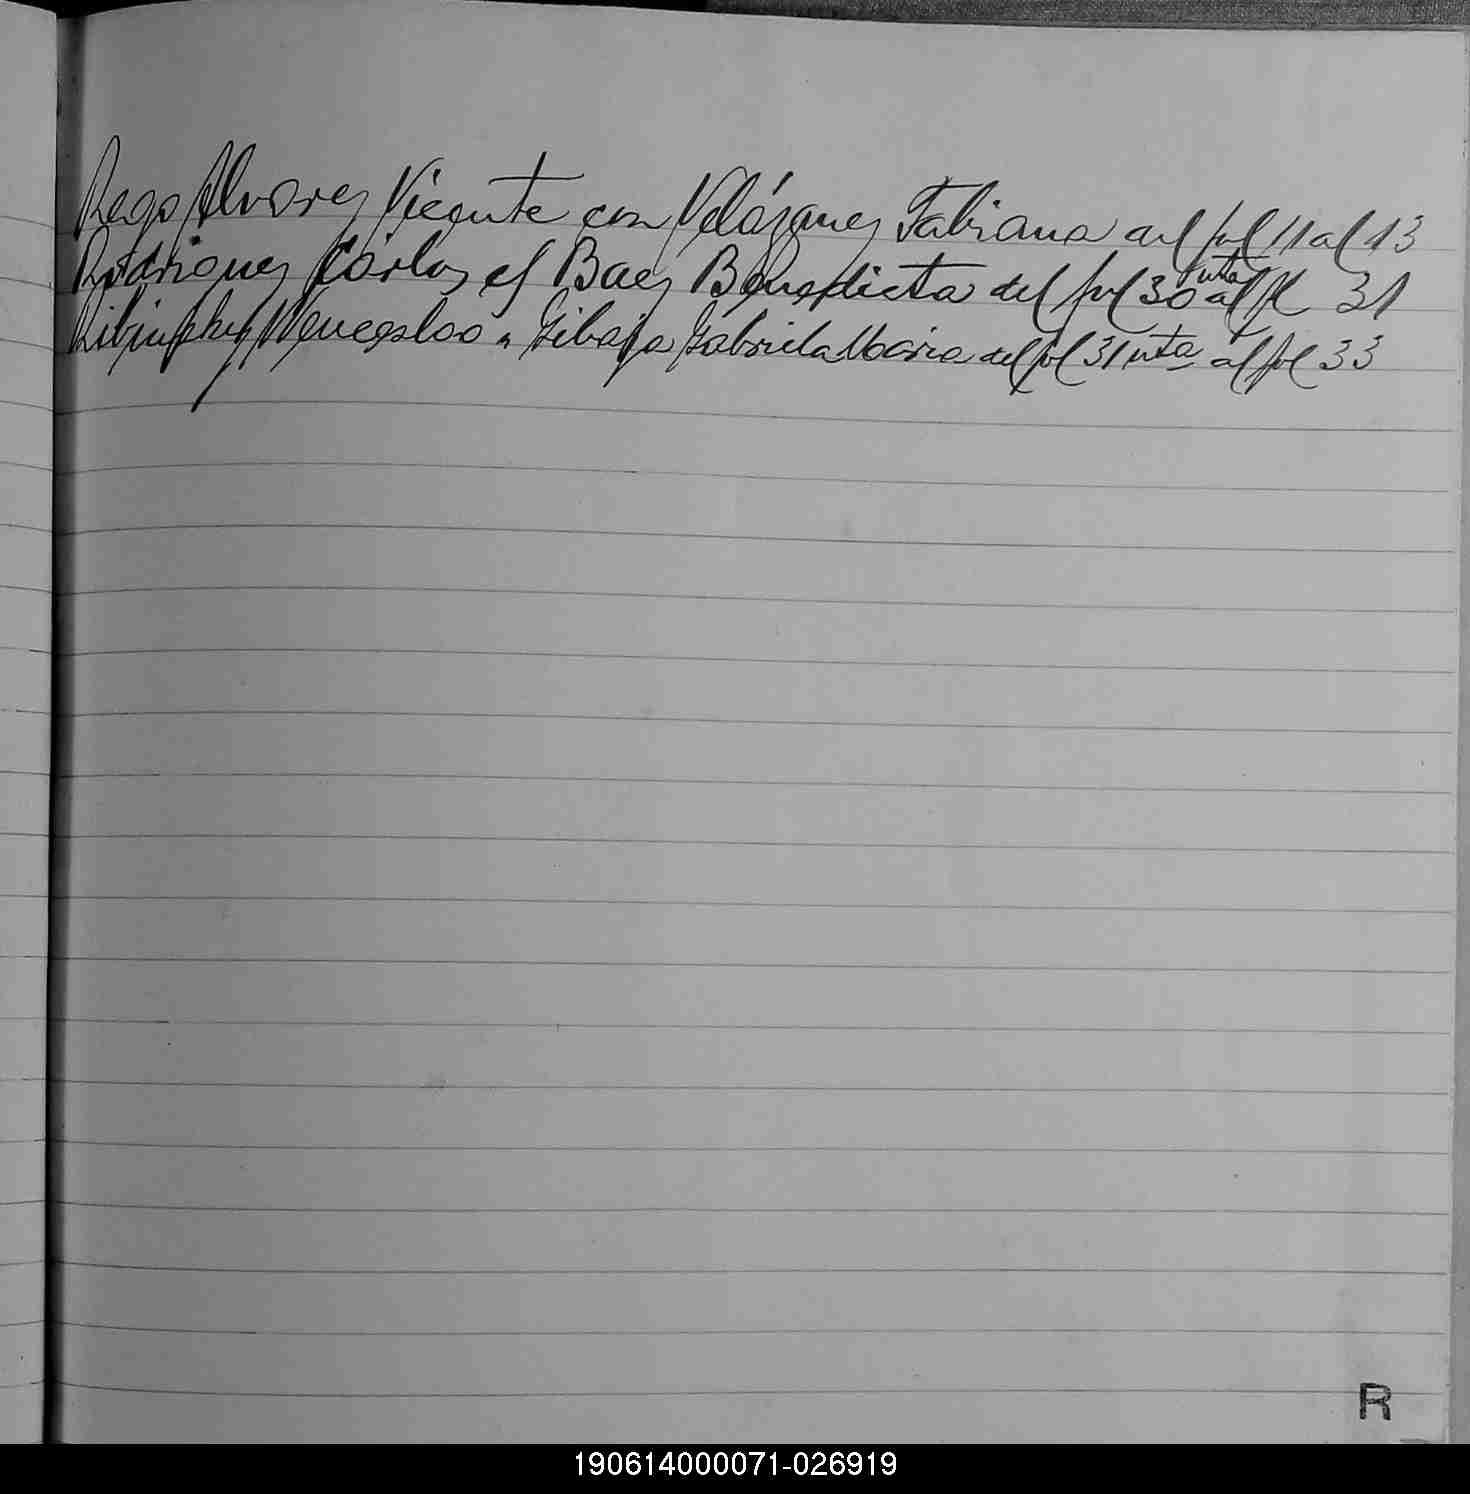 Rego Alvarez Vicente con Velázquez Fabiana del fol 11 al 13
Rodriguez Cárlos c/ Baez Benedicta del fol 30 vta al fl 31
Wenceslao " Gibaja Gabriela María del fol 31 vta al fol 33
R
190614000071-026919